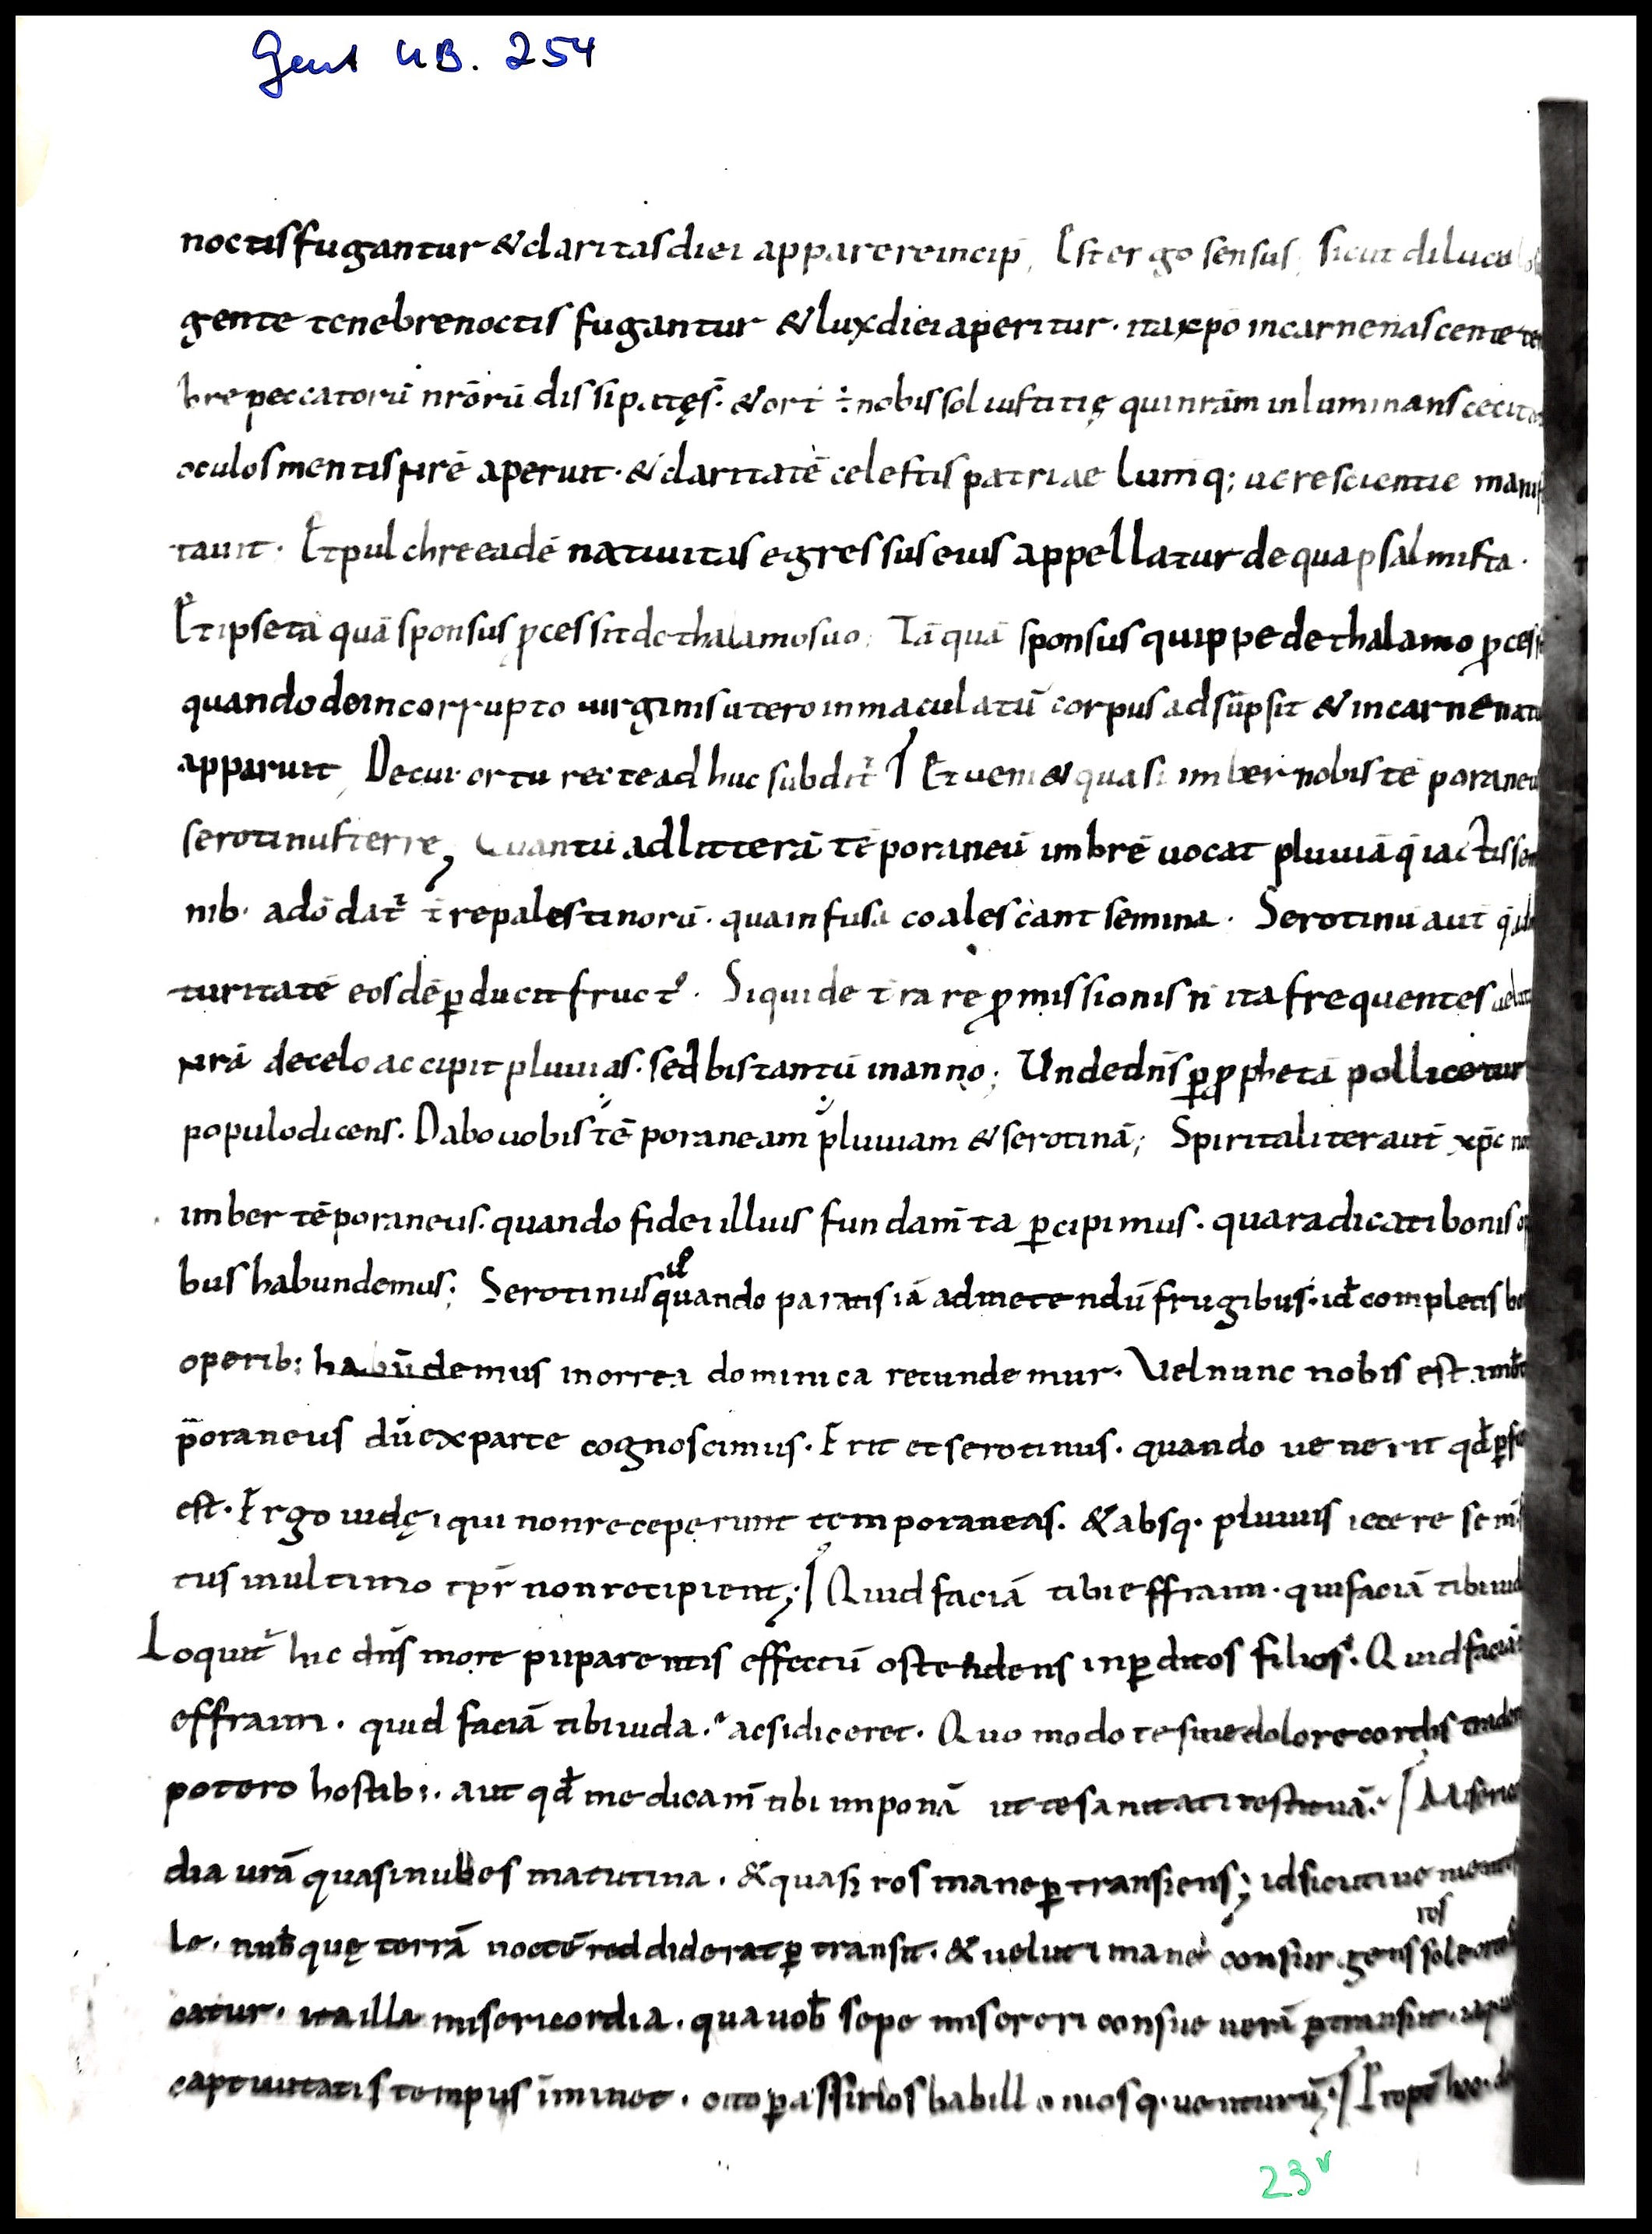 Gent UB. 254
noctis fugantur & claritas diei apparere incip̄. Est ergo sensus, sicut diluculo
gente tenebre noctis fugantur & lux diei aperitur. ita xp̄o in carne nascente te
bre peccatorū nr̄orū dissipatę s̄. & ort ÷ nobis sol iustitię qui nr̄am inluminans cecita
oculos mentis nr̄e aperuit. & claritatē celestis patriae lumq; uere scientie manif
tauit. Et pulchre eadē natiuitas egressus eius appellatur de qua psalmista.
Et ipse tā quā sponsus ꝓcessit de thalamo suo. Tā quā sponsus quippe de thalamo ꝓcess
quando de incorrupto uirginis utero inmaculatū corpus adsūpsit & in carne natu
apparuit, De cui ortu recte adhuc subdit̄ Et ueni& quasi imber nobis tēporaneu
serotinus terre, Quantū ad litterā tēporaneū imbrē uocat pluuiā q̄ iactis sem
nib. a dō dat̄ t̄re palestinorū. qua infusa coalescant semina. Serotinū aut̄ q̄
turitatē eosdē ꝑducit fruct᾽. Siquidē t̄ra repꝓmissionis n̄ ita frequentes uelut
nr̄ā de celo accipit pluuias. sed bis tantū in anno; Unde dn̄s ꝑ ꝓphetā pollicetur
populo dicens. Dabo uobis tēporaneam pluuiam & serotinā; Spiritaliter aut̄ xp̄c no
imber tēporaneus. quando fidei illius fundam̄ta ꝑcipimus. qua radicati bonis op
bus habundemus; Serotinus ū quando paratis iā ad metendū frugibus. id̄ completis bo
operib; habūdemus in orrea dominica recundemur. Vel nunc nobis est imb̄
p̄oraneus dū ex parte cognoscimus. Erit et serotinus. quando uenerit qd̄ ꝑfe
est. Ergo iudęi qui non receperunt temporaneas. & absq. pluuiis iecere sem
tus in ultimo tp̄r non recipient; Quid faciā tibi effraim. qui faciā tibi iud
Loquit̄ hic dn̄s more pii parentis effectū ostendens in ꝑditos filios. Quid faciā
effraim. quid faciā tibi iuda. ac si diceret. Quo modo te sine dolore cordis trader
potero hostib;. aut qd̄ medicam̄ tibi imponā ut te sanitati restituā. Miserico
dia ur̄ā quasi nubes matutina. & quasi ros mane ꝑtransiens; id sicuti
le. nub̄ quę terrā nocte reddiderat ꝑtransit. & uelut i mane consurgens ros sole
catur. ita illa misericordia. qua uob̄ sepe misereri consueuerā ꝑtransiit.
captiuitatis tempus iminet. cito ꝑ assirios babilloniosq. uenturū; Propt̄ hoc. do
23v